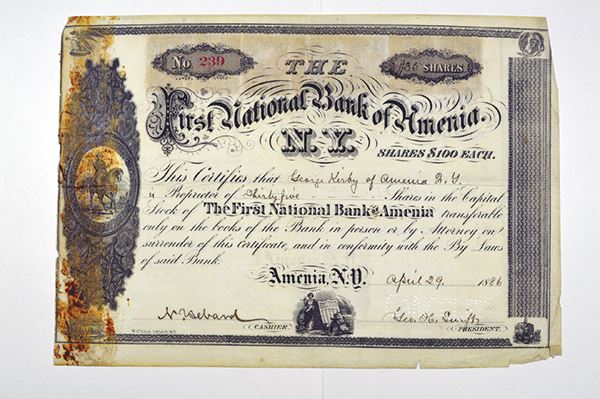 No 239
#35 SHARES
THE
First National Bank of Amenia.
N.Y.
SHARES $100 EACH.
This Certifies that George Kirby of Amenia N.Y.
is Proprietor of Thirty five Shares in the Capital
Stock of The First National Bank of Amenia transferable
only on the books of the Bank in person or by Attorney on
surrender of this Certificate, and in conformity with the By Laws
of said Bank.
Amenia, N.Y. April 29. 1886
CASHIER.
Geo. H. Swift
PRESIDENT.